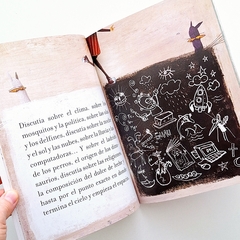 Discutía sobre el clima, sobre los
mosquitos y la política, sobre las
y los delfines, discutía sobre la
y el sol y las nubes, sobre la
computadoras... Y sobre el
de los perros, el origen de los
saurios, discutía sobre las
la composición del dulce de
hasta por el punto exacto en donde
termina el cielo y empieza el espacio